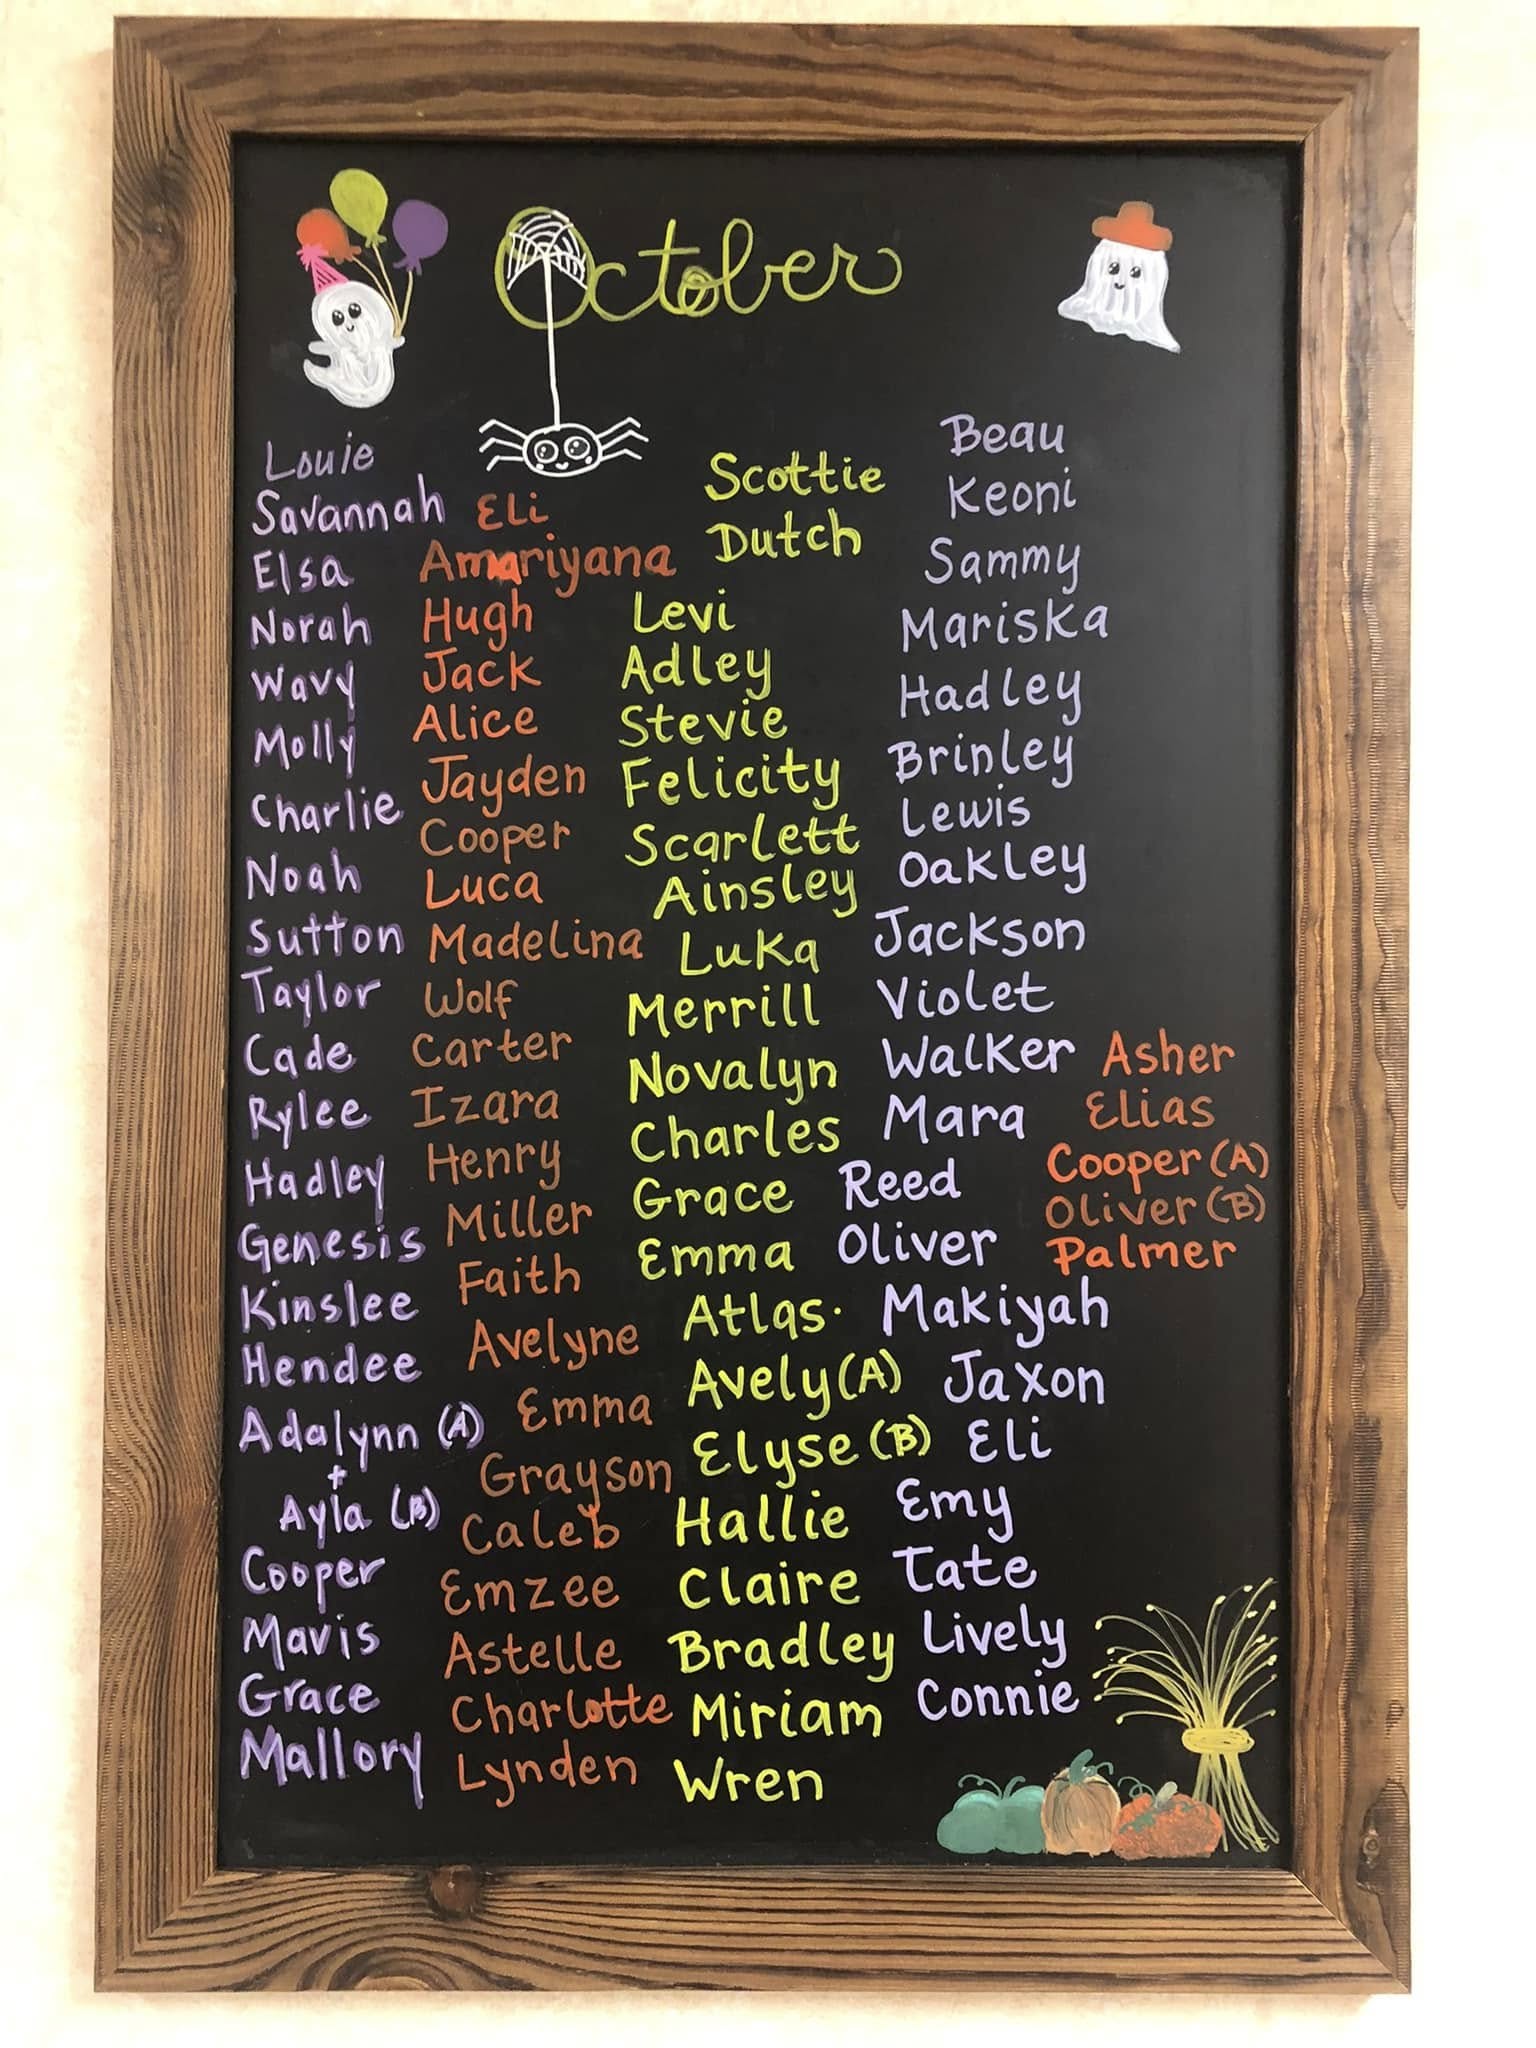 October
Louie
Savannah
Elsa
Norah
Wavy
Molly
Charlie
Noah
Sutton
Taylor
Cade
Rylee
Hadley
Genesis
Kinslee
Hendee
Adalynn (A)
+
Ayla (B)
Cooper
Mavis
Grace
Mallory
Eli
Amariyana
Hugh
Jack
Alice
Jayden
Cooper
Luca
Madelina
Wolf
Carter
Izara
Henry
Miller
Faith
Avelyne
Emma
Grayson
Caleb
Emzee
Astelle
Charlotte
Lynden
Scottie
Dutch
Levi
Adley
Stevie
Felicity
Scarlett
Ainsley
Luka
Merrill
Novalyn
Charles
Grace
Emma
Atlas.
Avely (A)
Elyse (B)
Hallie
Claire
Bradley
Miriam
Wren
Beau
Keoni
Sammy
Mariska
Hadley
Brinley
Lewis
Oakley
Jackson
Violet
Walker
Mara
Reed
Oliver
Makiyah
Jaxon
Eli
Emy
Tate
Lively
Connie
Asher
Elias
Cooper (A)
Oliver (B)
Palmer